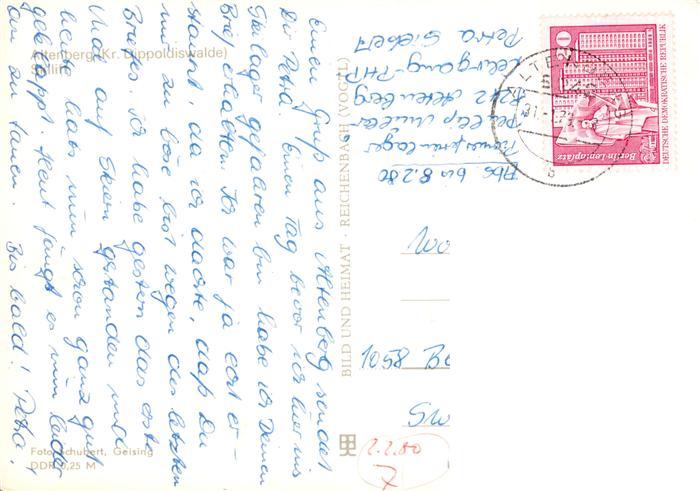 Altenberg (Kr. Dippoldiswalde)
Einen Gruß aus Altenberg sendet
Dir Petra. Einen Tag bevor ich hier ins
Skilager gefahren bin habe ich Deinen
Brief erhalten. Ich war ja erst er-
staunt, da ich dachte, daß Du
mir zu böse bist wegen des letzten
Briefes. Ich habe gestern das erste
Mal auf Skiern gestanden und
habe es nun schon ganz gut
geklappt. Heut fängt es nun leider
an zu tauen. Bis bald! Petra.
Foto: Schubert, Geising
DDR 0,25 M
BILD UND HEIMAT · REICHENBACH (VOGTL)
Abs bis 8.2.80
Pionierlager
Philipp Müller
Altenberg
Lehrgang - PHP
Petra Siebert
ALTENBERG
5
b
10
Berlin-Leninplatz
DEUTSCHE DEMOKRATISCHE REPUBLIK
1058
2.2.80